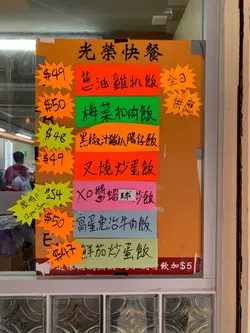 光榮快餐
$49
蔥油雞扒飯
全日
供應
$50
梅菜扣肉飯
$48
黑椒汁雞扒腸仔飯
$49
叉燒炒蛋飯
$54
XO醬蝦球炒飯
$50
窩蛋免治牛肉飯
$47
鮮茄炒蛋飯
飲加$5